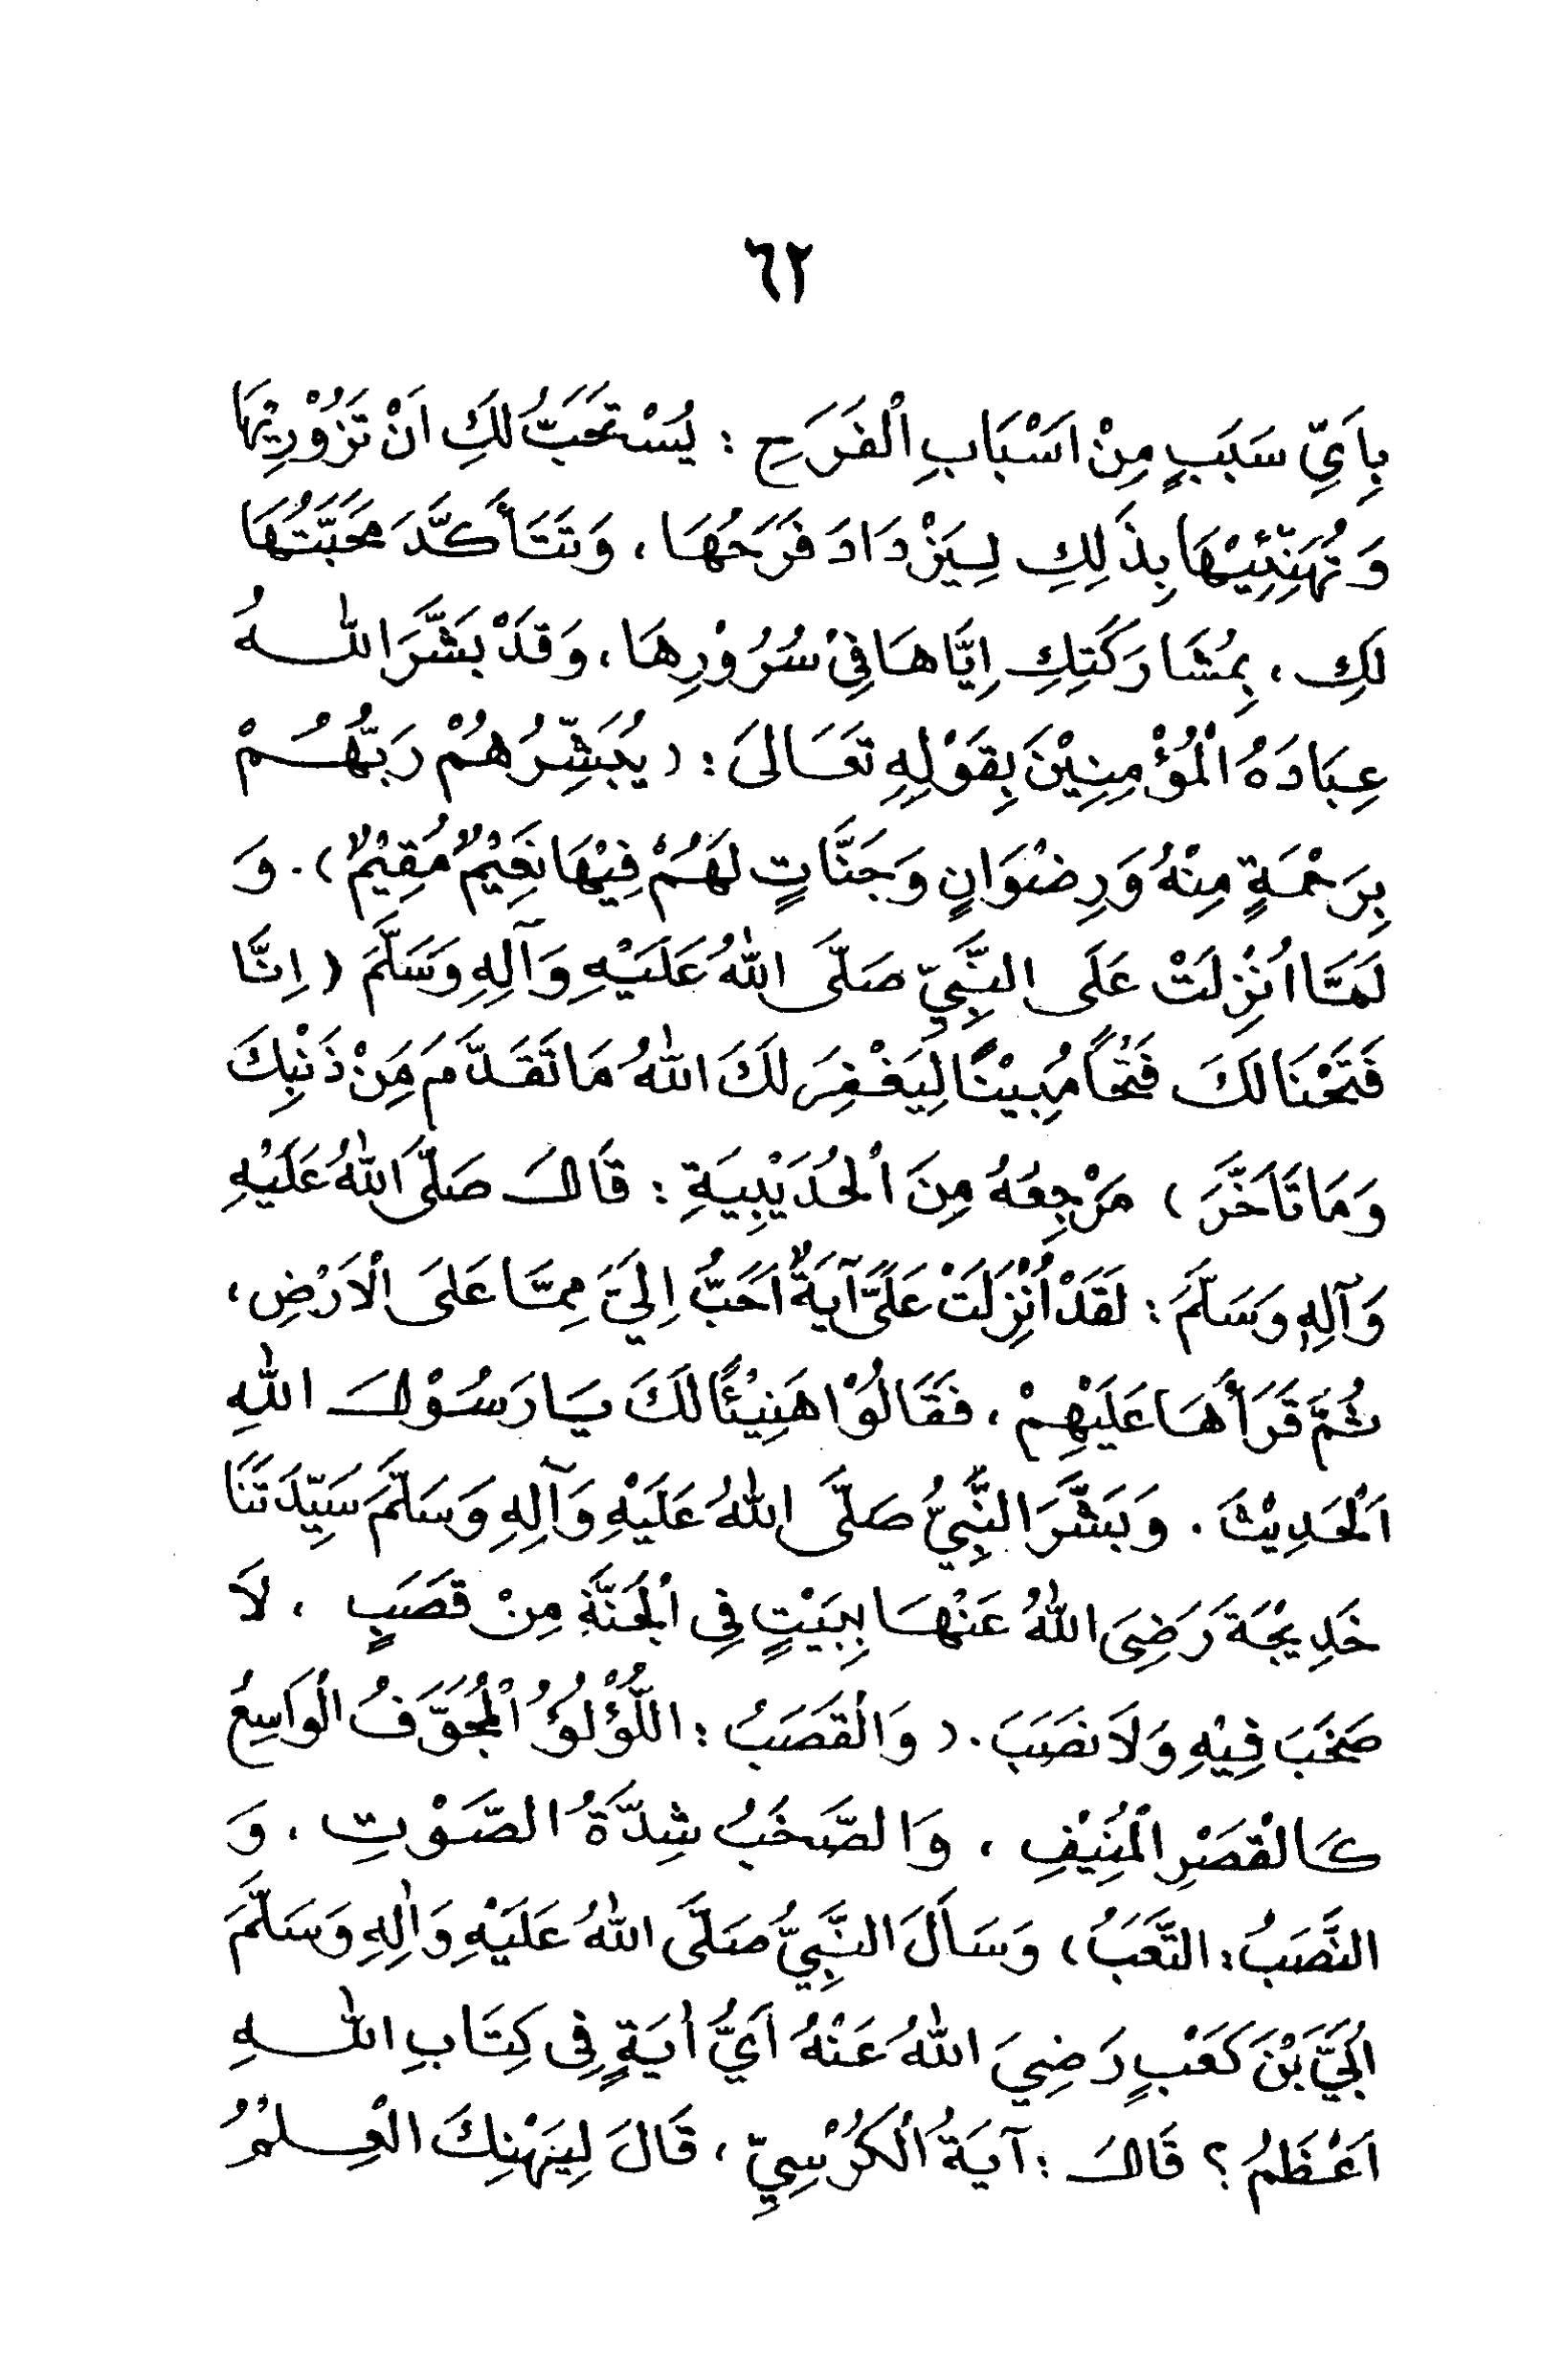 ٦٢
بِاَيِّ سَبَبٍ مِنْ اَسْبَابِ اْلفَرَحِ : يُسْتَحَبُّ لَكِ اَنْ تَزُوْرِيْهَا
وَتُهَنِّئِيْهَا بِذَلِكِ لِيَزْدَادَ فَرَحُهَا ، وَتَتَأَكَّدَ مَحَبَّتُهَا
لَكِ ، بِمُشَارَكَتِكِ اِيَّاهَا فِيْ سُرُوْرِهَا ، وَقَدْ بَشَّرَ اللهُ
عِبَادَهُ اْلمُؤْمِنِيْنَ بِقَوْلِهِ تَعَالَى : ( يُبَشِّرُهُمْ رَبُّهُمْ
بِرَحْمَةٍ مِنْهُ وَرِضْوَانٍ وَجَنَّاتٍ لَهُمْ فِيْهَا نَعِيْمٌ مُقِيْمٌ ) . وَ
لَمَّا اُنْزِلَتْ عَلَى النَّبِيِّ صَلَّى اللهُ عَلَيْهِ وَآلِهِ وَسَلَّمَ ( اِنَّا
فَتَحْنَا لَكَ فَتْحًا مُبِيْنًا لِيَغْفِرَ لَكَ اللهُ مَا تَقَدَّمَ مَِنْ ذَنْبِكَ
وَمَا تَاَخَّرَ ) مَرْجِعُهُ مِنَ اْلحُدَيْبِيَةِ : قَالَ صَلَّى اللهُ عَلَيْهِ
وَآلِهِ وَسَلَّمَ : لَقَدْ اُنْزِلَتْ عَلَيَّ آيَةٌ اَحَبُّ اِلَيَّ مِمَّا عَلَى اْلاَرْضِ ،
ثُمَّ قَرَأَهَا عَلَيْهِمْ ، فَقَالُوْا هَنِيْئًا لَكَ يَا رَسُوْلَ اللهِ
اَلْحَدِيْثَ . وَبَشَّرَ النَّبِيُّ صَلَّى اللهُ عَلَيْهِ وَآلِهِ وَسَلَّمَ سَيِّدَتَنَا
خَدِيْجَةَ رَضِيَ اللهُ عَنْهَا بِبَيْتٍ فِى اْلجَنَّةِ مِنْ قَصَبٍ ، لاَ
صَخَبَ فِيْهِ وَلاَ نَصَبَ . ( وَالْقَصَبُ : اللُّؤْلُؤُ اْلمُجَوَّفُ الْوَاسِعُ
كَالْقَصْرِ اْلمُنِيْفِ ، وَالصَّخَبُ شِدَّةُ الصَّوْتِ ، وَ
النَّصَبُ : التَّعَبُ ) وَسَأَلَ النَّبِيُّ صَلَّى اللهُ عَلَيْهِ وَاٰلِهِ وَسَلَّمَ
اُبَيَّ بْنَ كَعْبٍ رَضِيَ اللهُ عَنْهُ اَيُّ اٰيَةٍ فِى كِتَابِ اللهِ
اَعْظَمُ ؟ قَالَ : آيَةُ اْلكُرْسِيِّ ، قَالَ لِيَهْنِكَ الْعِلْمُ